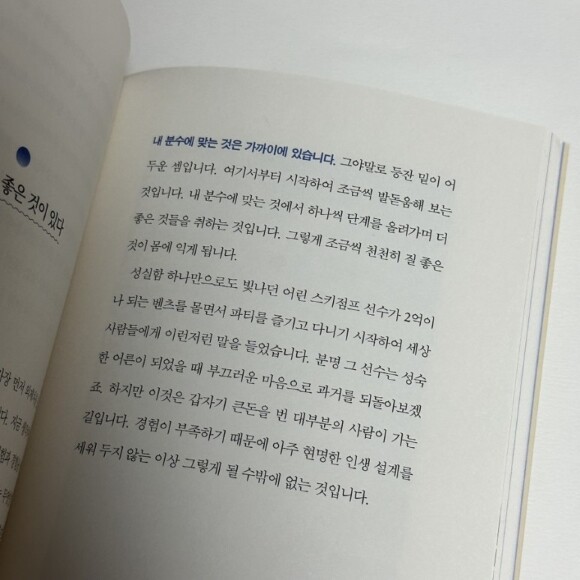 좋은 것이 있다
내 분수에 맞는 것은 가까이에 있습니다. 그야말로 등잔 밑이 어
두운 셈입니다. 여기서부터 시작하여 조금씩 발돋움해 보는
것입니다. 내 분수에 맞는 것에서 하나씩 단계를 올려가며 더
좋은 것들을 취하는 것입니다. 그렇게 조금씩 천천히 질 좋은
것이 몸에 익게 됩니다.
성실함 하나만으로도 빛나던 어린 스키점프 선수가 2억이
나 되는 벤츠를 몰면서 파티를 즐기고 다니기 시작하여 세상
사람들에게 이런저런 말을 들었습니다. 분명 그 선수는 성숙
한 어른이 되었을 때 부끄러운 마음으로 과거를 되돌아보겠
죠. 하지만 이것은 갑자기 큰돈을 번 대부분의 사람이 가는
길입니다. 경험이 부족하기 때문에 아주 현명한 인생 설계를
세워 두지 않는 이상 그렇게 될 수밖에 없는 것입니다.